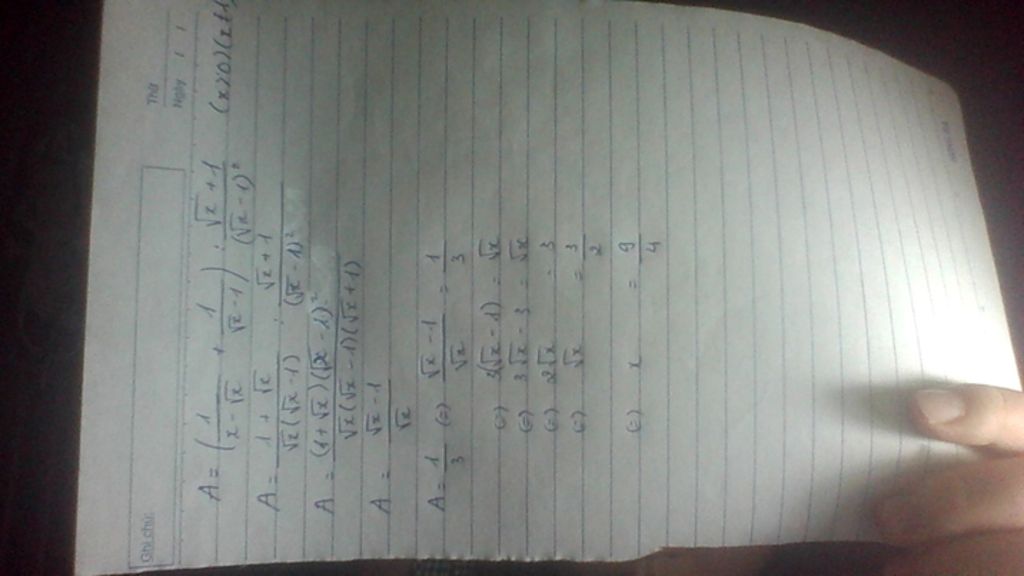 Ghi chú:
Thứ
Ngày
A = (1/(x-√x) + 1/(√x-1)) : (√x+1)/(√x-1)² (x>0)(x≠1)
A = (1+√x)/(√x(√x-1)) : (√x+1)/(√x-1)²
A = (1+√x)(√x-1)²/(√x(√x-1)(√x+1))
A = (√x-1)/√x
A = 1/3 (=) (√x-1)/√x = 1/3
(=) 3(√x-1) = √x
(=) 3√x-3 = √x
(=) 2√x = 3
(=) √x = 3/2
(=) x = 9/4